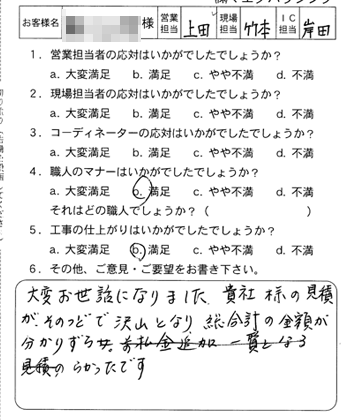 お客様名 様 営業担当 上田 現場担当 竹本 IC担当 岸田
1．営業担当者の応対はいかがでしたでしょうか？
a. 大変満足 b. 満足 c. やや不満 d. 不満
2．現場担当者の応対はいかがでしたでしょうか？
a. 大変満足 b. 満足 c. やや不満 d. 不満
3．コーディネーターの応対はいかがでしたでしょうか？
a. 大変満足 b. 満足 c. やや不満 d. 不満
4．職人のマナーはいかがでしたでしょうか？
a. 大変満足 b. 満足 c. やや不満 d. 不満
それはどの職人でしょうか？（ ）
5．工事の仕上がりはいかがでしたでしょうか？
a. 大変満足 b. 満足 c. やや不満 d. 不満
6．その他、ご意見・ご要望をお書き下さい。
大変お世話になりました、貴社様の見積
が、そのつどで沢山となり、総合計の金額が
分かりずら 金追加 一覧となる
見積の らかったです